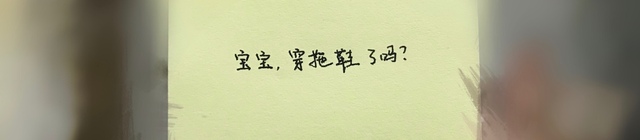 宝宝，穿拖鞋了吗？